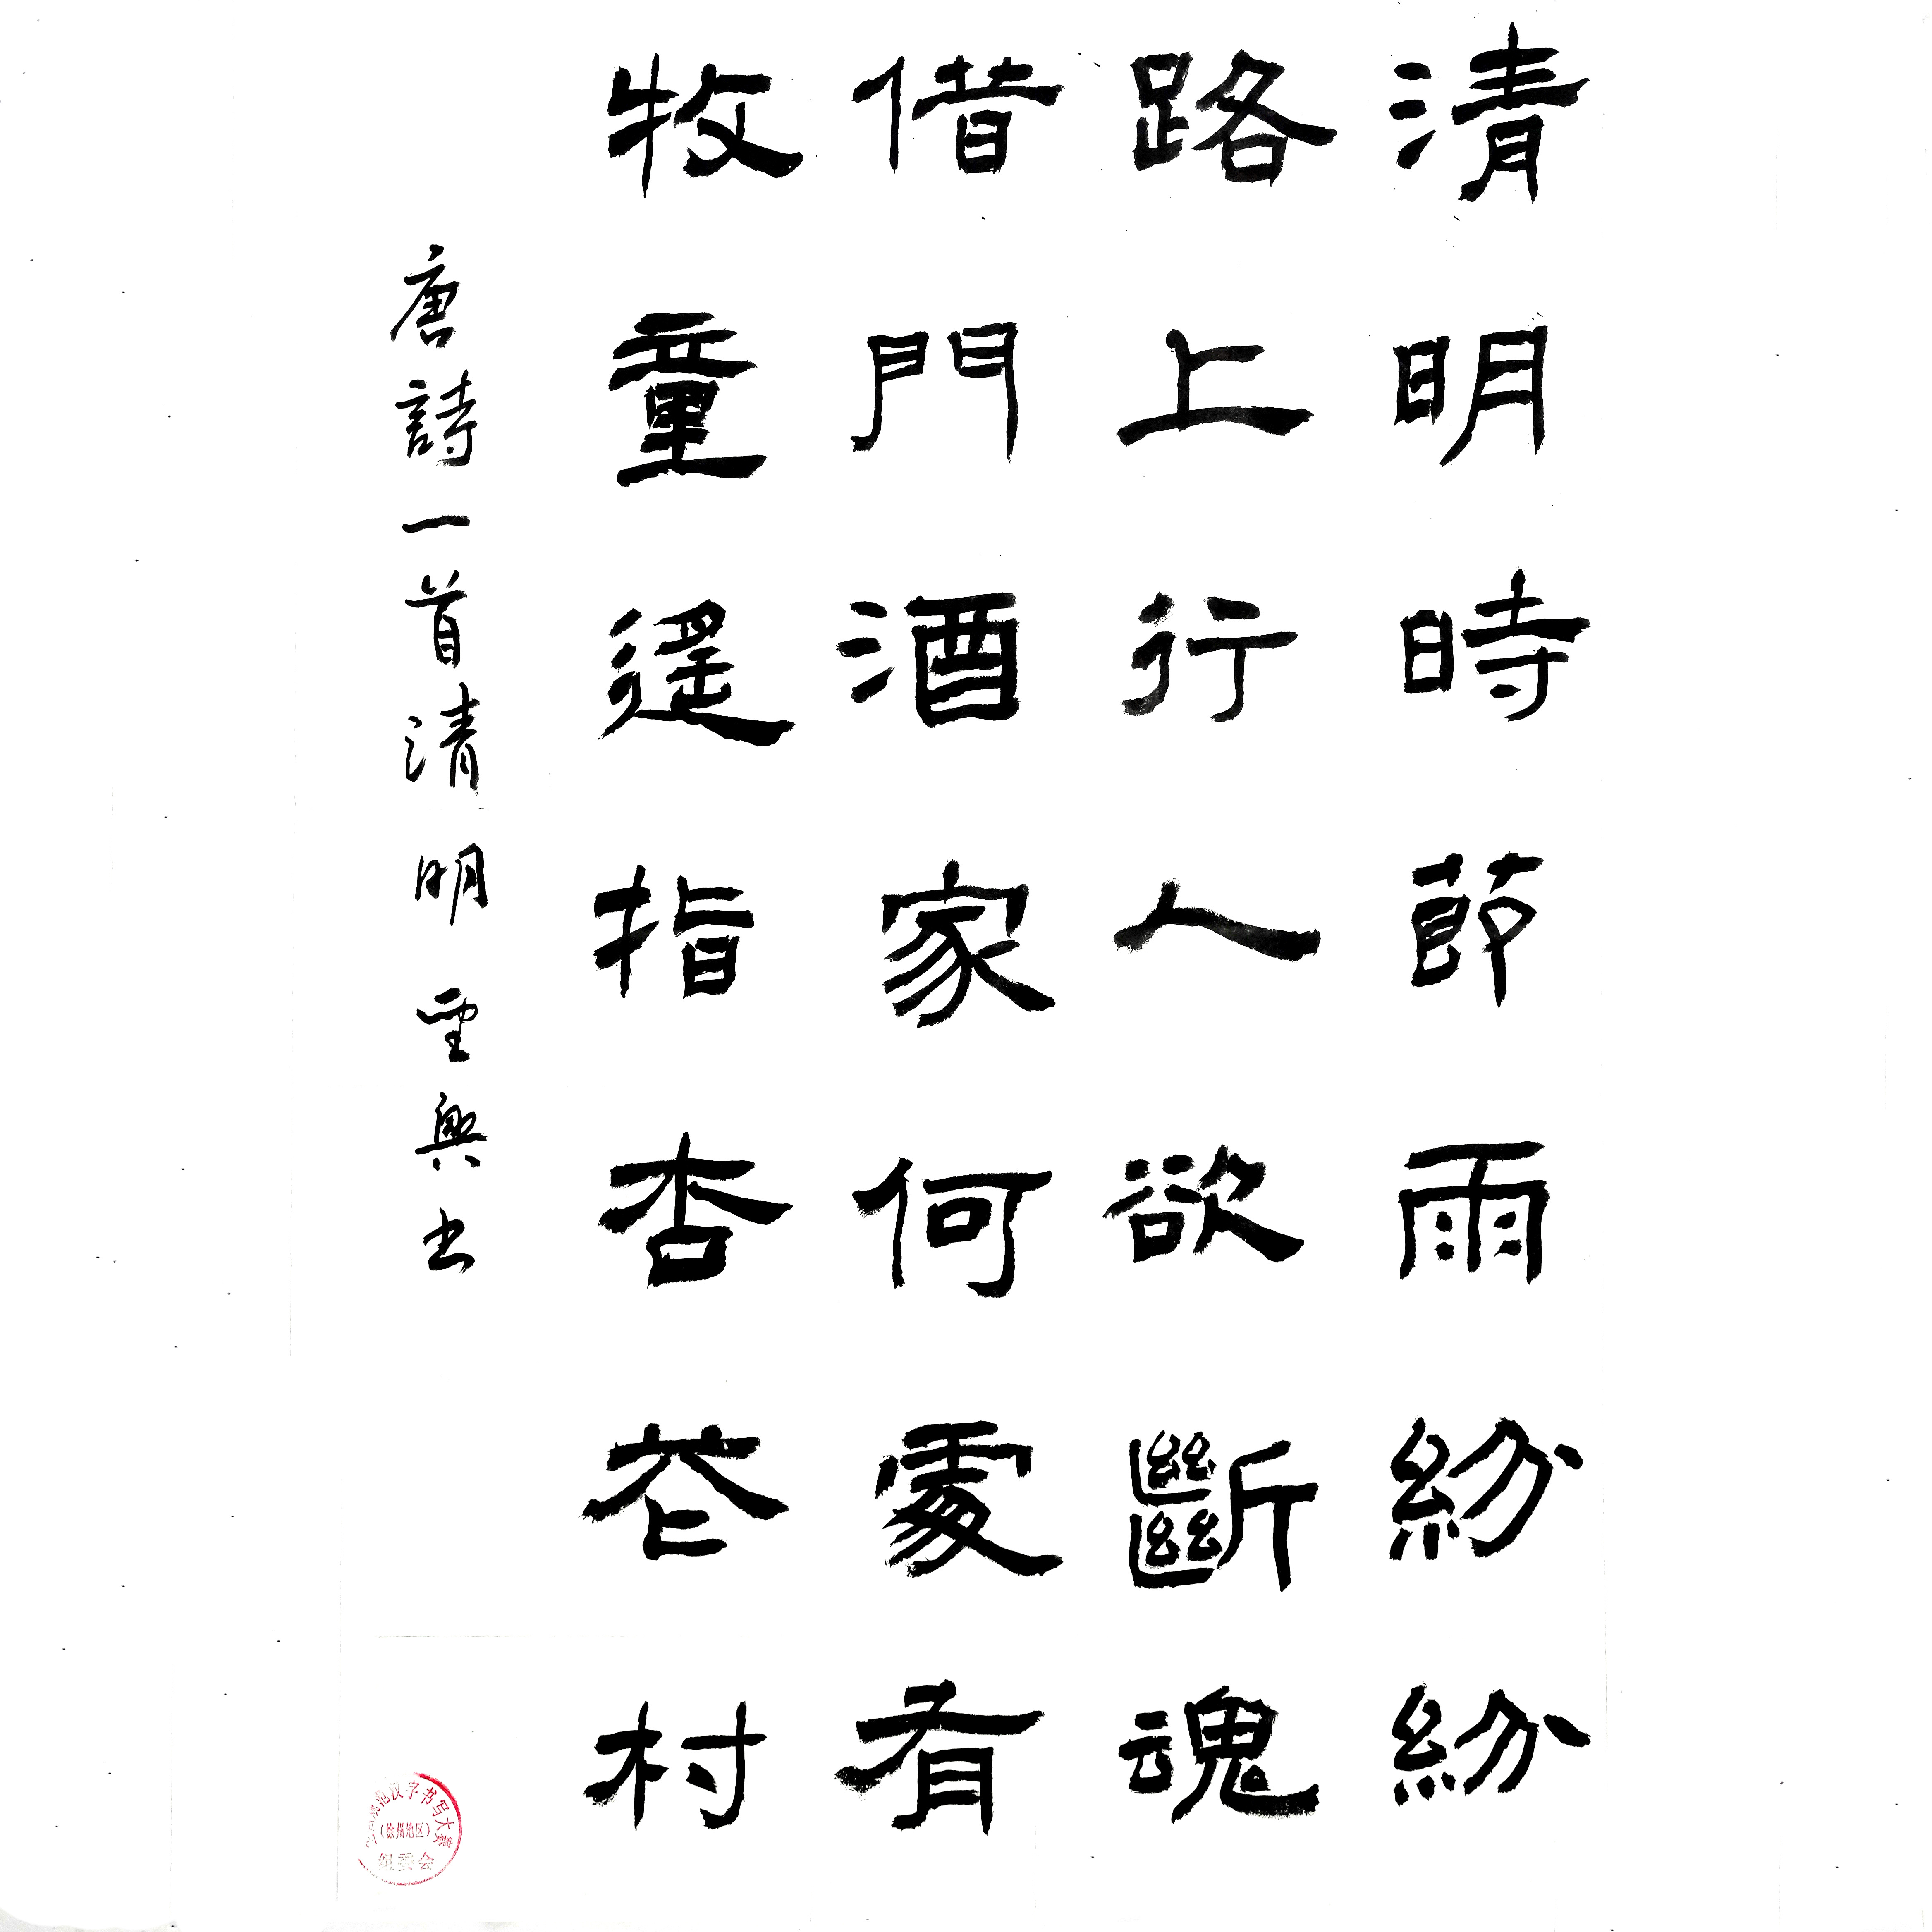 清明時節雨紛紛
路上行人欲斷魂
借門酒家何處有
牧童遥指杏花村
唐詩一首清明 重興书
汉字书写大赛
(徐州地区)
组委会